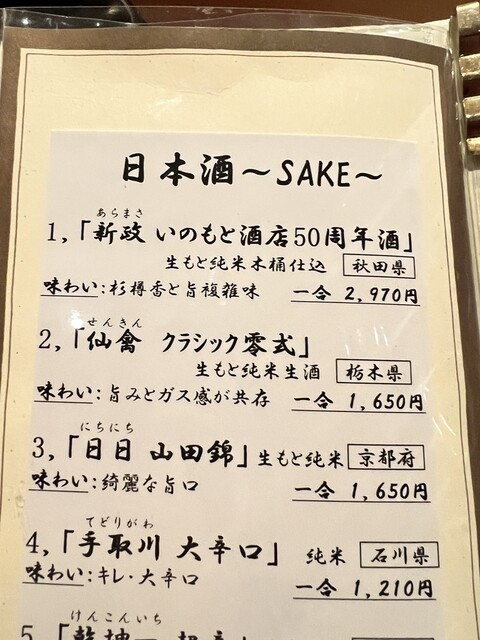 日本酒～SAKE～
あらまさ
1,「新政 いのもと酒店50周年酒」
生もと純米木桶仕込 秋田県
味わい:杉樽香と旨複雑味 一合 2,970円
せんきん
2,「仙禽 クラシック零式」
生もと純米生酒 栃木県
味わい:旨みとガス感が共存 一合 1,650円
にちにち
3,「日日 山田錦」生もと純米 京都府
味わい:綺麗な旨口 一合 1,650円
てどりがわ
4,「手取川 大辛口」 純米 石川県
味わい:キレ・大辛口 一合 1,210円
けんこんいち
5,「乾坤一